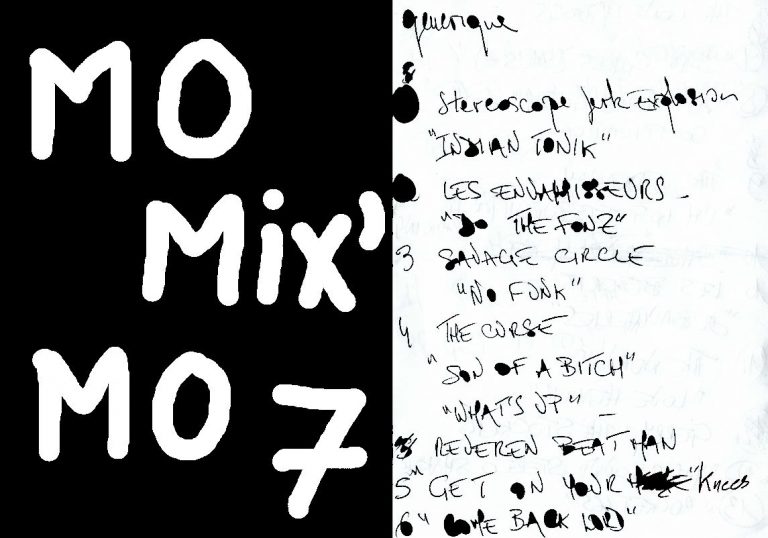 MO
Mix'
MO 7
generique
Stereoscope Jerk Explosion
"INDIAN TONIK"
LES ENVAHISSEURS -
"DO THE FONZ"
3 SAVAGE CIRCLE
"NO FUNK"
4 THE CURSE
"SON OF A BITCH"
"WHAT'S UP" -
REVEREN BEAT MAN
5 "GET ON YOUR "Knees
6 " COME BACK LORD"